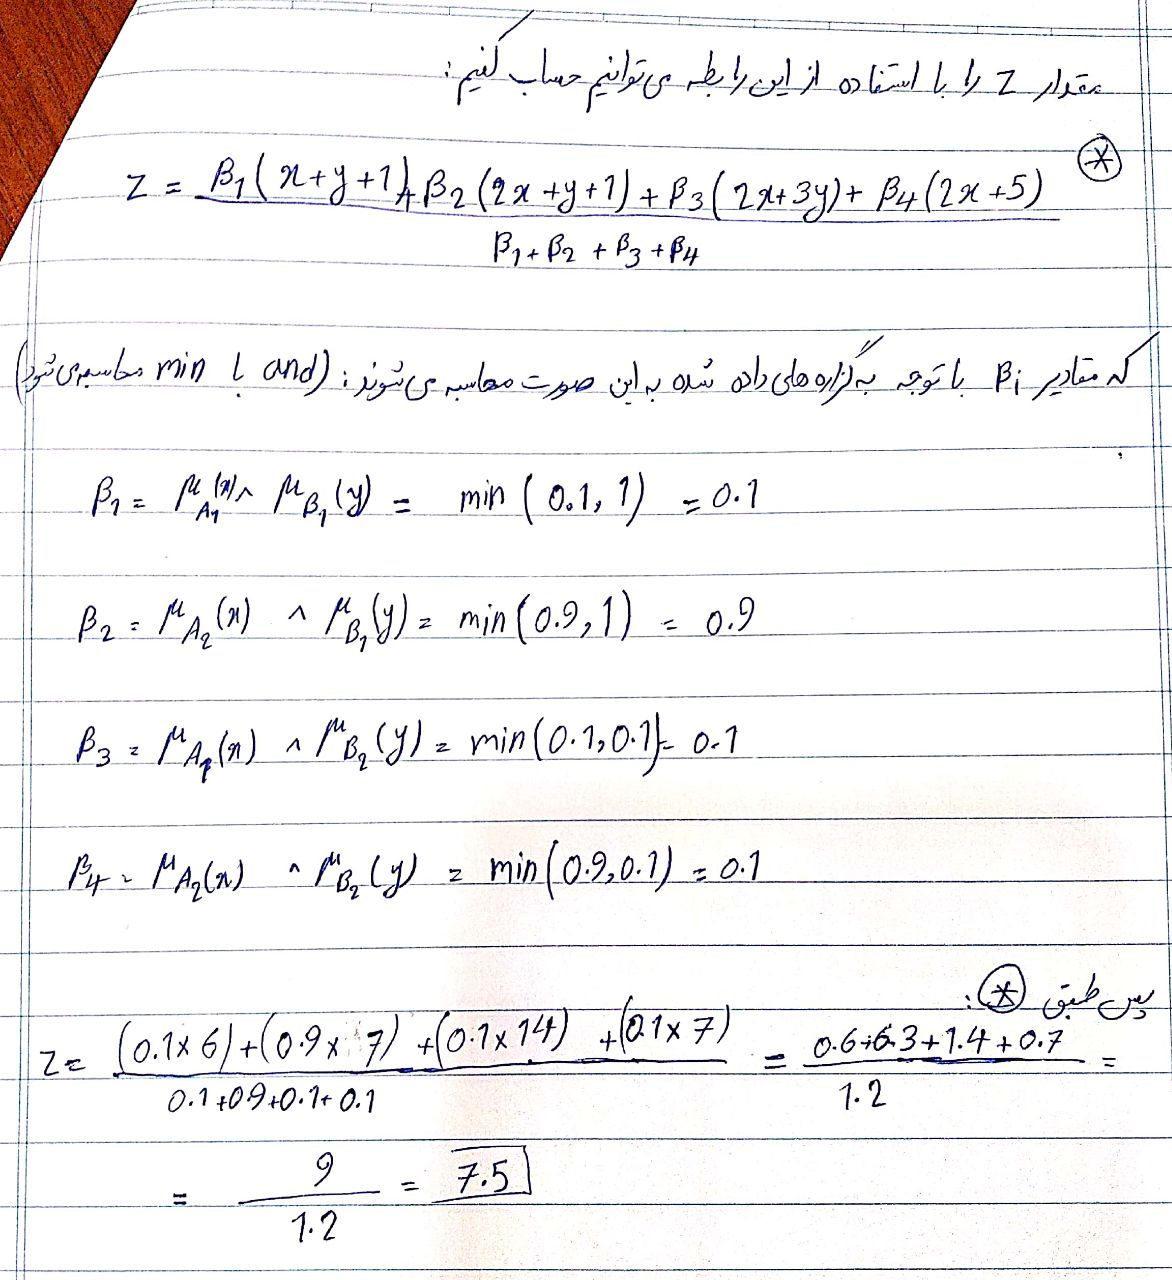 مقدار Z را با استفاده از این رابطه می‌توانیم حساب کنیم:
Z = (β1(x+y+1) + β2(2x+y+1) + β3(2x+3y) + β4(2x+5)) / (β1+β2+β3+β4) (*)
که مقادیر βi با توجه به گزاره‌های داده شده به این صورت محاسبه می‌شوند: (and با min محاسبه می‌شود)
β1 = μA1(x) ∧ μB1(y) = min(0.1, 1) = 0.1
β2 = μA2(x) ∧ μB1(y) = min(0.9, 1) = 0.9
β3 = μA1(x) ∧ μB2(y) = min(0.1, 0.1) = 0.1
β4 = μA2(x) ∧ μB2(y) = min(0.9, 0.1) = 0.1
پس طبق (*):
Z = ((0.1×6)+(0.9×7)+(0.1×14)+(0.1×7)) / (0.1+0.9+0.1+0.1) = (0.6+6.3+1.4+0.7) / 1.2 =
= 9 / 1.2 = 7.5